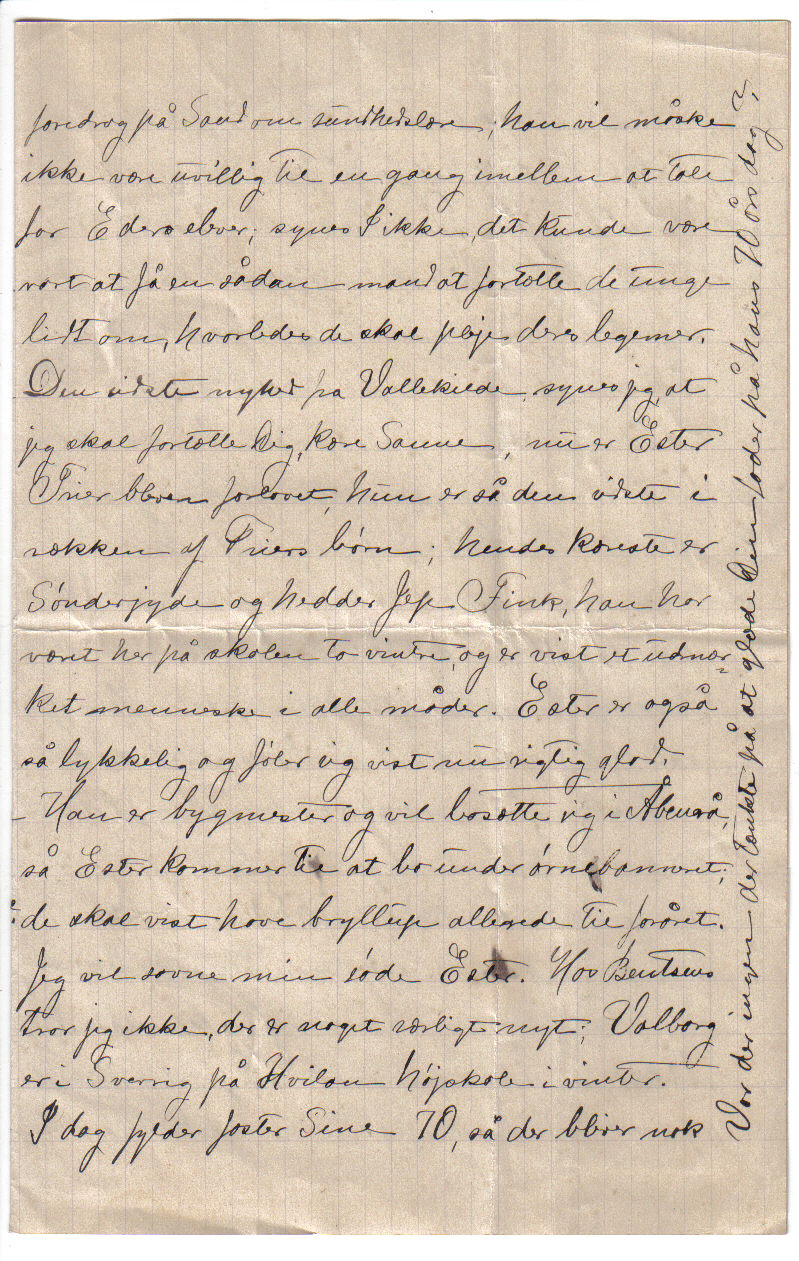 foredrag på Sand om sundhedslære; han vil måske
ikke være uvillig til en gang imellem at tale
for Eders elever; synes I ikke, det kunde være
rart at få en sådan mand at fortælle de unge
lidt om, hvorledes de skal pleje deres legemer.
Den sidste nyhed fra Vallekilde, synes jeg, at
jeg skal fortælle Dig, kære Sanne, nu er Ester
Trier bleven forlovet, hun er så den sidste i
rækken af Triers børn; hendes kæreste er
Sønderjyde og hedder Jep Fink, han har
været her på skolen to vintre, og er vist et udmær-
ket menneske i alle måder. Ester er også
så lykkelig og føler sig vist nu rigtig glad.
- Han er bygmester og vil bosætte sig i Åbenrå,
så Ester kommer til at bo under ørnebanneret;
de skal vist have bryllup allerede til foråret.
Jeg vil savne min søde Ester. Hos Bentsens
tror jeg ikke, der er noget særligt nyt; Valborg
er i Sverrig på Hvilan højskole i vinter.
I dag fylder faster Sine 70, så der bliver nok
Var der ingen der tænkte på at glæde Din fader på hans 70 års dag?